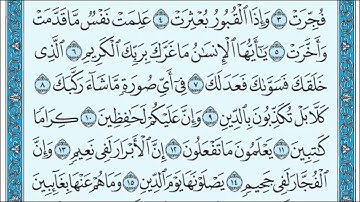 فُجِّرَتْ ٣ وَإِذَا ٱلْقُبُورُ بُعْثِرَتْ ٤ عَلِمَتْ نَفْسٌ مَّا قَدَّمَتْ
وَأَخَّرَتْ ٥ يَٰٓأَيُّهَا ٱلْإِنسَٰنُ مَا غَرَّكَ بِرَبِّكَ ٱلْكَرِيمِ ٦ ٱلَّذِى
خَلَقَكَ فَسَوَّىٰكَ فَعَدَلَكَ ٧ فِىٓ أَىِّ صُورَةٍ مَّا شَآءَ رَكَّبَكَ ٨
كَلَّا بَلْ تُكَذِّبُونَ بِٱلدِّينِ ٩ وَإِنَّ عَلَيْكُمْ لَحَٰفِظِينَ ١٠ كِرَامًا
كَٰتِبِينَ ١١ يَعْلَمُونَ مَا تَفْعَلُونَ ١٢ إِنَّ ٱلْأَبْرَارَ لَفِى نَعِيمٍ ١٣ وَإِنَّ
ٱلْفُجَّارَ لَفِى جَحِيمٍ ١٤ يَصْلَوْنَهَا يَوْمَ ٱلدِّينِ ١٥ وَمَا هُمْ عَنْهَا بِغَآئِبِينَ